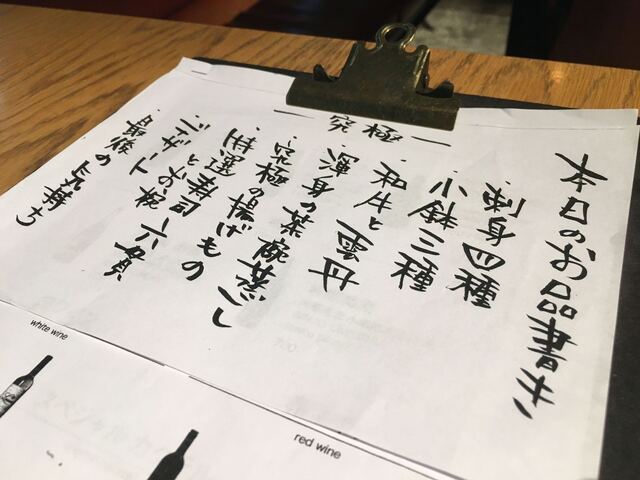 本日のお品書き
一 究極 一
・刺身四種
・小鉢三種
・和牛と雲丹
・渾身の茶碗蒸し
・究極の揚げもの
・厳選寿司六貫
・デザートとお椀
・最後の気持ち
white wine
red wine